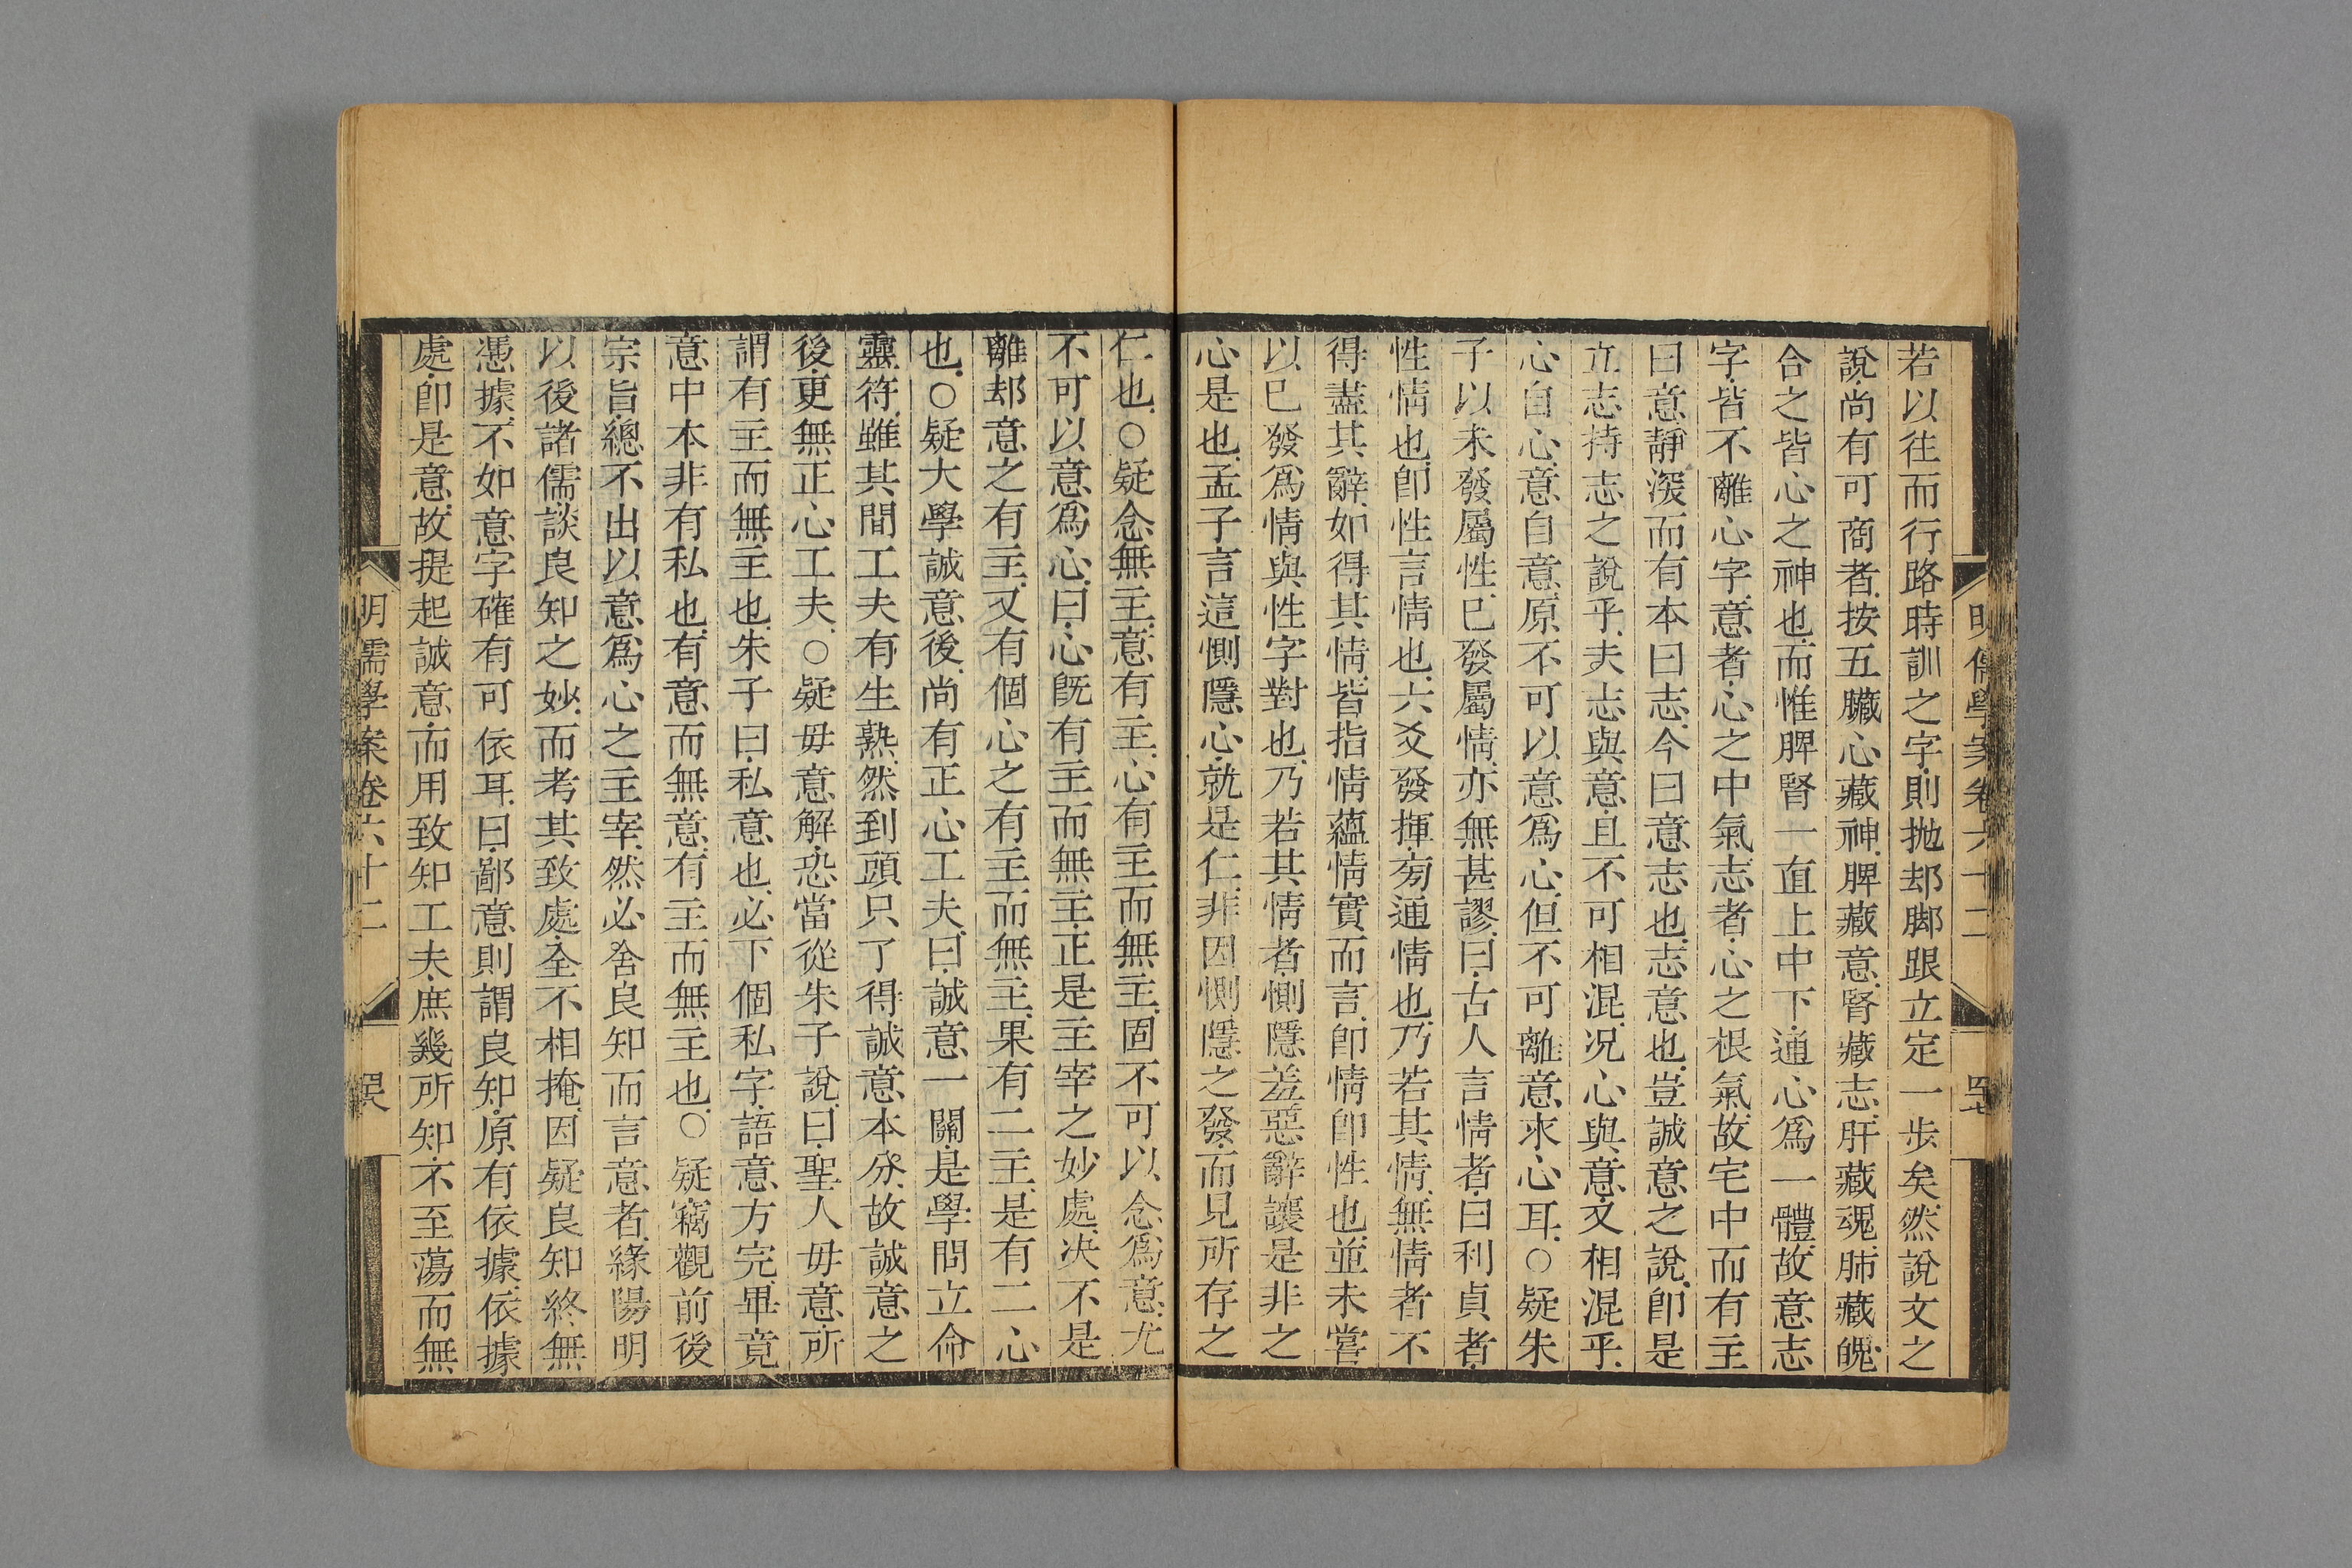 明儒學案卷六十二
四七
若以往而行路時訓之字則拋却脚跟立定一步矣然說文之
說尚有可商者按五臟心藏神脾藏意腎藏志肝藏魂肺藏魄
合之皆心之神也而惟脾腎一直上中下通心爲一體故意志
字皆不離心字意者心之中氣志者心之根氣故宅中而有主
曰意靜深而有本曰志今曰意志也志意也豈誠意之說卽是
立志持志之說乎夫志與意且不可相混况心與意又相混乎
心自心意自意原不可以意爲心但不可離意求心耳○疑朱
子以未發屬性已發屬情亦無甚謬曰古人言情者曰利貞者
性情也卽性言情也六爻發揮旁通情也乃若其情無情者不
得盡其辭如得其情皆指情蘊情實而言卽情卽性也並未嘗
以已發爲情與性字對也乃若其情者惻隱羞惡辭讓是非之
心是也孟子言這惻隱心就是仁非因惻隱之發而見所存之
仁也○疑念無主意有主心有主而無主固不可以念爲意尤
不可以意爲心曰心旣有主而無主正是主宰之妙處决不是
離却意之有主又有個心之有主而無主果有二主是有二心
也○疑大學誠意後尚有正心工夫曰誠意一關是學問立命
靈符雖其間工夫有生熟然到頭只了得誠意本分故誠意之
後更無正心工夫○疑毋意解恐當從朱子說曰聖人毋意所
謂有主而無主也朱子曰私意也必下個私字語意方完畢竟
意中本非有私也有意而無意有主而無主也○疑竊觀前後
宗旨總不出以意爲心之主宰然必舍良知而言意者緣陽明
以後諸儒談良知之妙而考其致處全不相掩因疑良知終無
憑據不如意字確有可依耳曰鄙意則謂良知原有依據依據
處卽是意故提起誠意而用致知工夫庶幾所知不至蕩而無
明儒學案卷六十二
四八